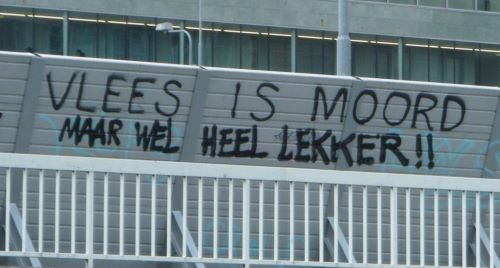 VLEES IS MOORD
MAAR WEL HEEL LEKKER!!